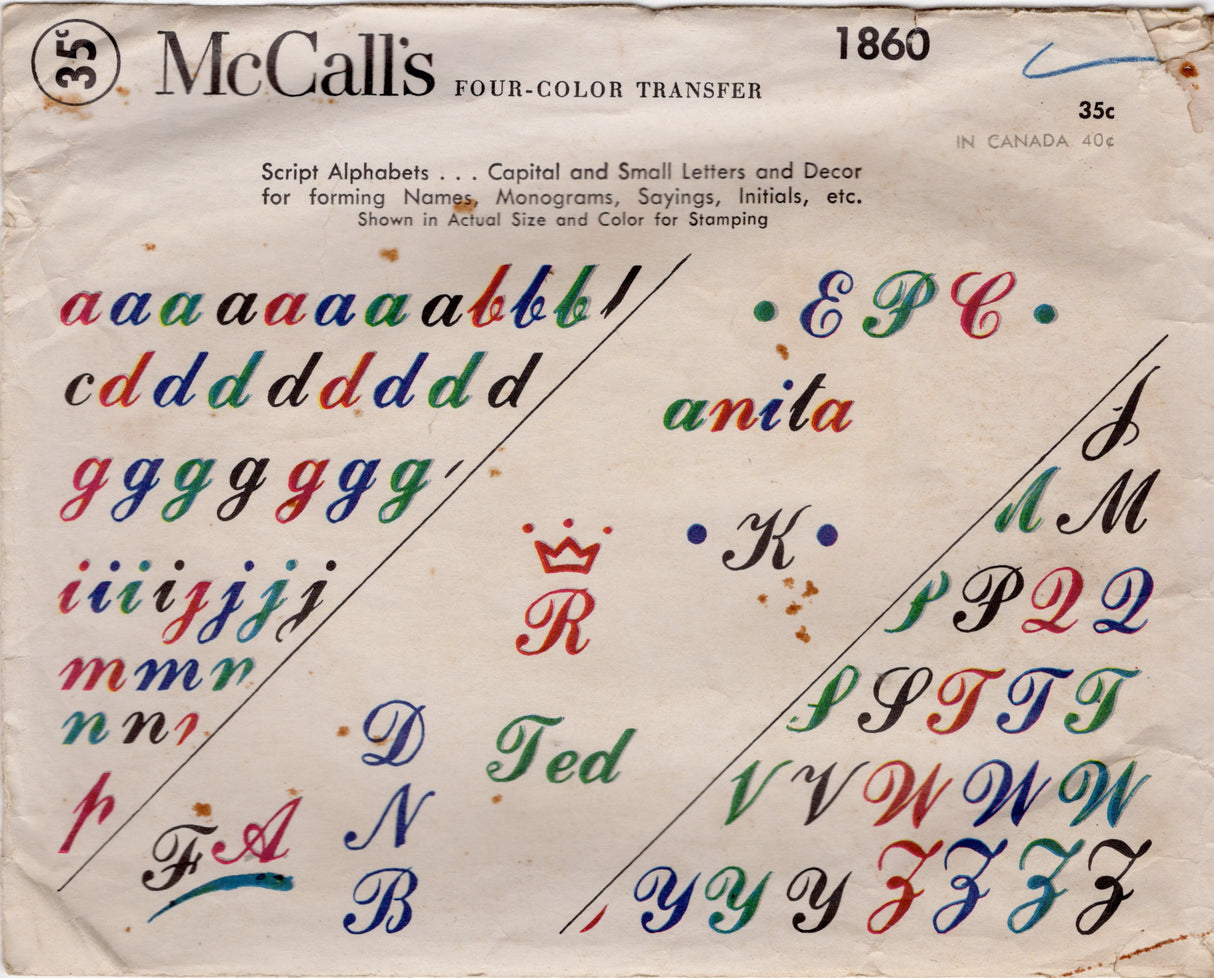 35c McCall's FOUR-COLOR TRANSFER 1860
35c
IN CANADA 40¢
Script Alphabets . . . Capital and Small Letters and Decor
for forming Names, Monograms, Sayings, Initials, etc.
Shown in Actual Size and Color for Stamping
a a a a a a a a b b b
c d d d d d d d d
g g g g g g g
i i i i j j j j
m m n
n n
p
E P C
anita
K
R
D
N
B
Ted
F A
M
P Q Q
S T T T
V V W W W
Y Y Y Z Z Z Z